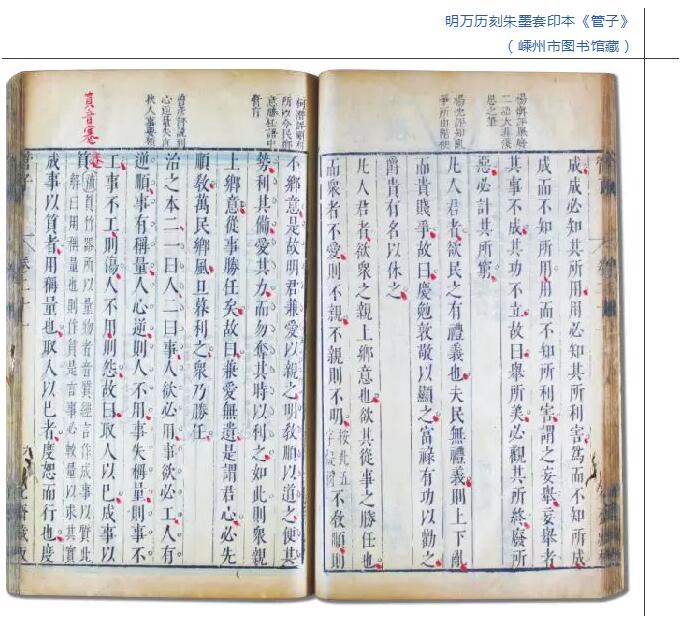 明万历刻朱墨套印本《管子》
（嵊州市图书馆藏）
成成必知其所用用必知其所利害爲而不知所
成成而不知所用用而不知所利害謂之妄舉妄舉者
其事不成其功不立故曰舉所美必觀其所終廢所
惡必計其所窮
凡人君者欲民之有禮義也夫民無禮義則上下亂
而貴賤爭故曰慶勉敦敬以顯之富祿有功以勸之
爵貴有名以休之
凡人君者欲衆之親上鄉意也欲其從事之勝任也
而衆者不愛則不親不親則不明按此五字疑不敎順則
不鄉意是故明君兼愛以親之明敎順以道之便其
勢利其備愛其力而勿奪其時以利之如此則衆親
上鄉意從事勝任矣故曰兼愛無遺是謂君心必先
順敎萬民鄉風旦暮利之衆乃勝任
治之本二一曰人二曰事人欲必用事欲必工人有
逆順事有稱量人心逆則人不用事失稱量則事不
工事不工則傷人不用則怨故曰取人以巳成事以
質
質竹器所以量物者音質經言作成事以質此
解曰用稱量也則作質是言事必較量以求其實
成事以質者用稱量也取人以巳者度恕而行也